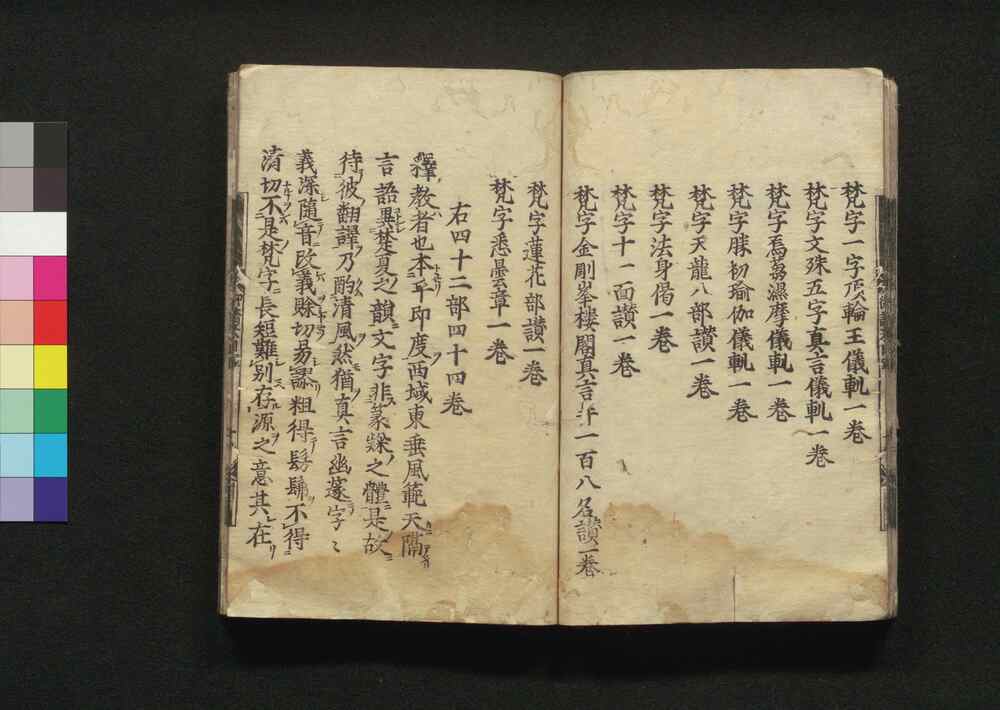 梵字一字頂輪王儀軌一卷
梵字文殊五字真言儀軌一卷
梵字烏芻澀摩儀軌一卷
梵字勝初瑜伽儀軌一卷
梵字天龍八部讚一卷
梵字法身偈一卷
梵字十一面讚一卷
梵字金剛峯樓閣真言并一百八名讚一卷
梵字蓮花部讚一卷
梵字悉曇章一卷
右四十二部四十四卷
釋教者也本乎印度西域東垂風範天隔
言語異梵夏之韻文字非篆隸之體是故
待彼翻譯乃酌清風然猶真言幽邃字〻
義深隨音改義賒切易謬粗得髣髴不得
清切不是梵字長短難別存源之意其在